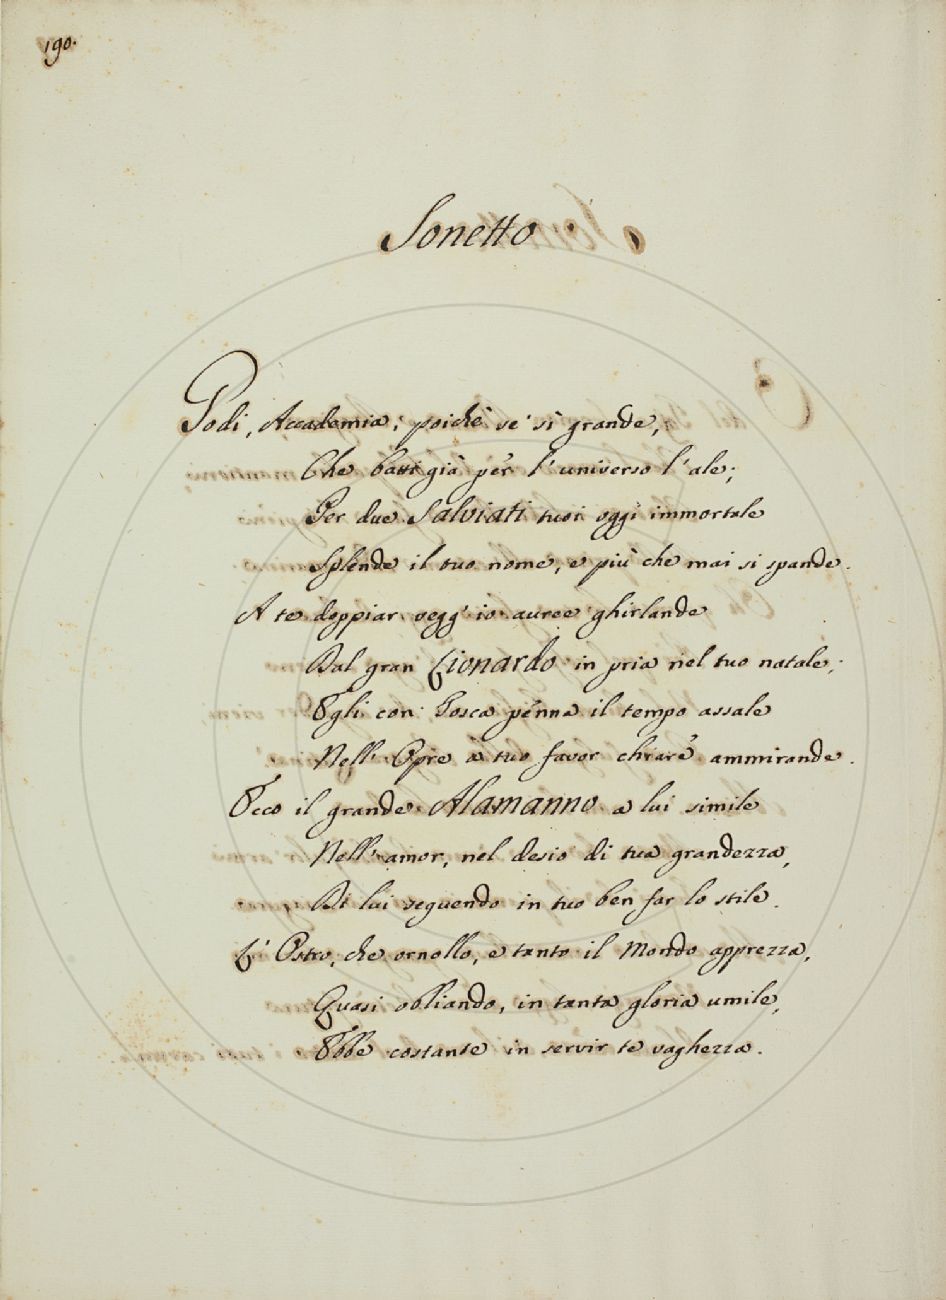 190.
Sonetto
Godi, Accademia; poichè se' sì grande,
Che batti già per l'universo l'ale;
Per due Salviati tuoi oggi immortale
Splende il tuo nome, e più che mai si spande.
A te doppiar vegg'io auree ghirlande
Dal gran Lionardo in pria nel tuo natale;
Egli con Tosca penna il tempo assale
Nell'Opre a tuo favor chiare ammirande.
Ecco il grande Alamanno a lui simile
Nell'amor, nel desio di tua grandezza,
Di lui seguendo in tuo ben far lo stile.
L'Ostro, che ornollo, e tanto il Mondo apprezza,
Quasi obliando, in tanta gloria umile,
Ebbe costante in servir te vaghezza.